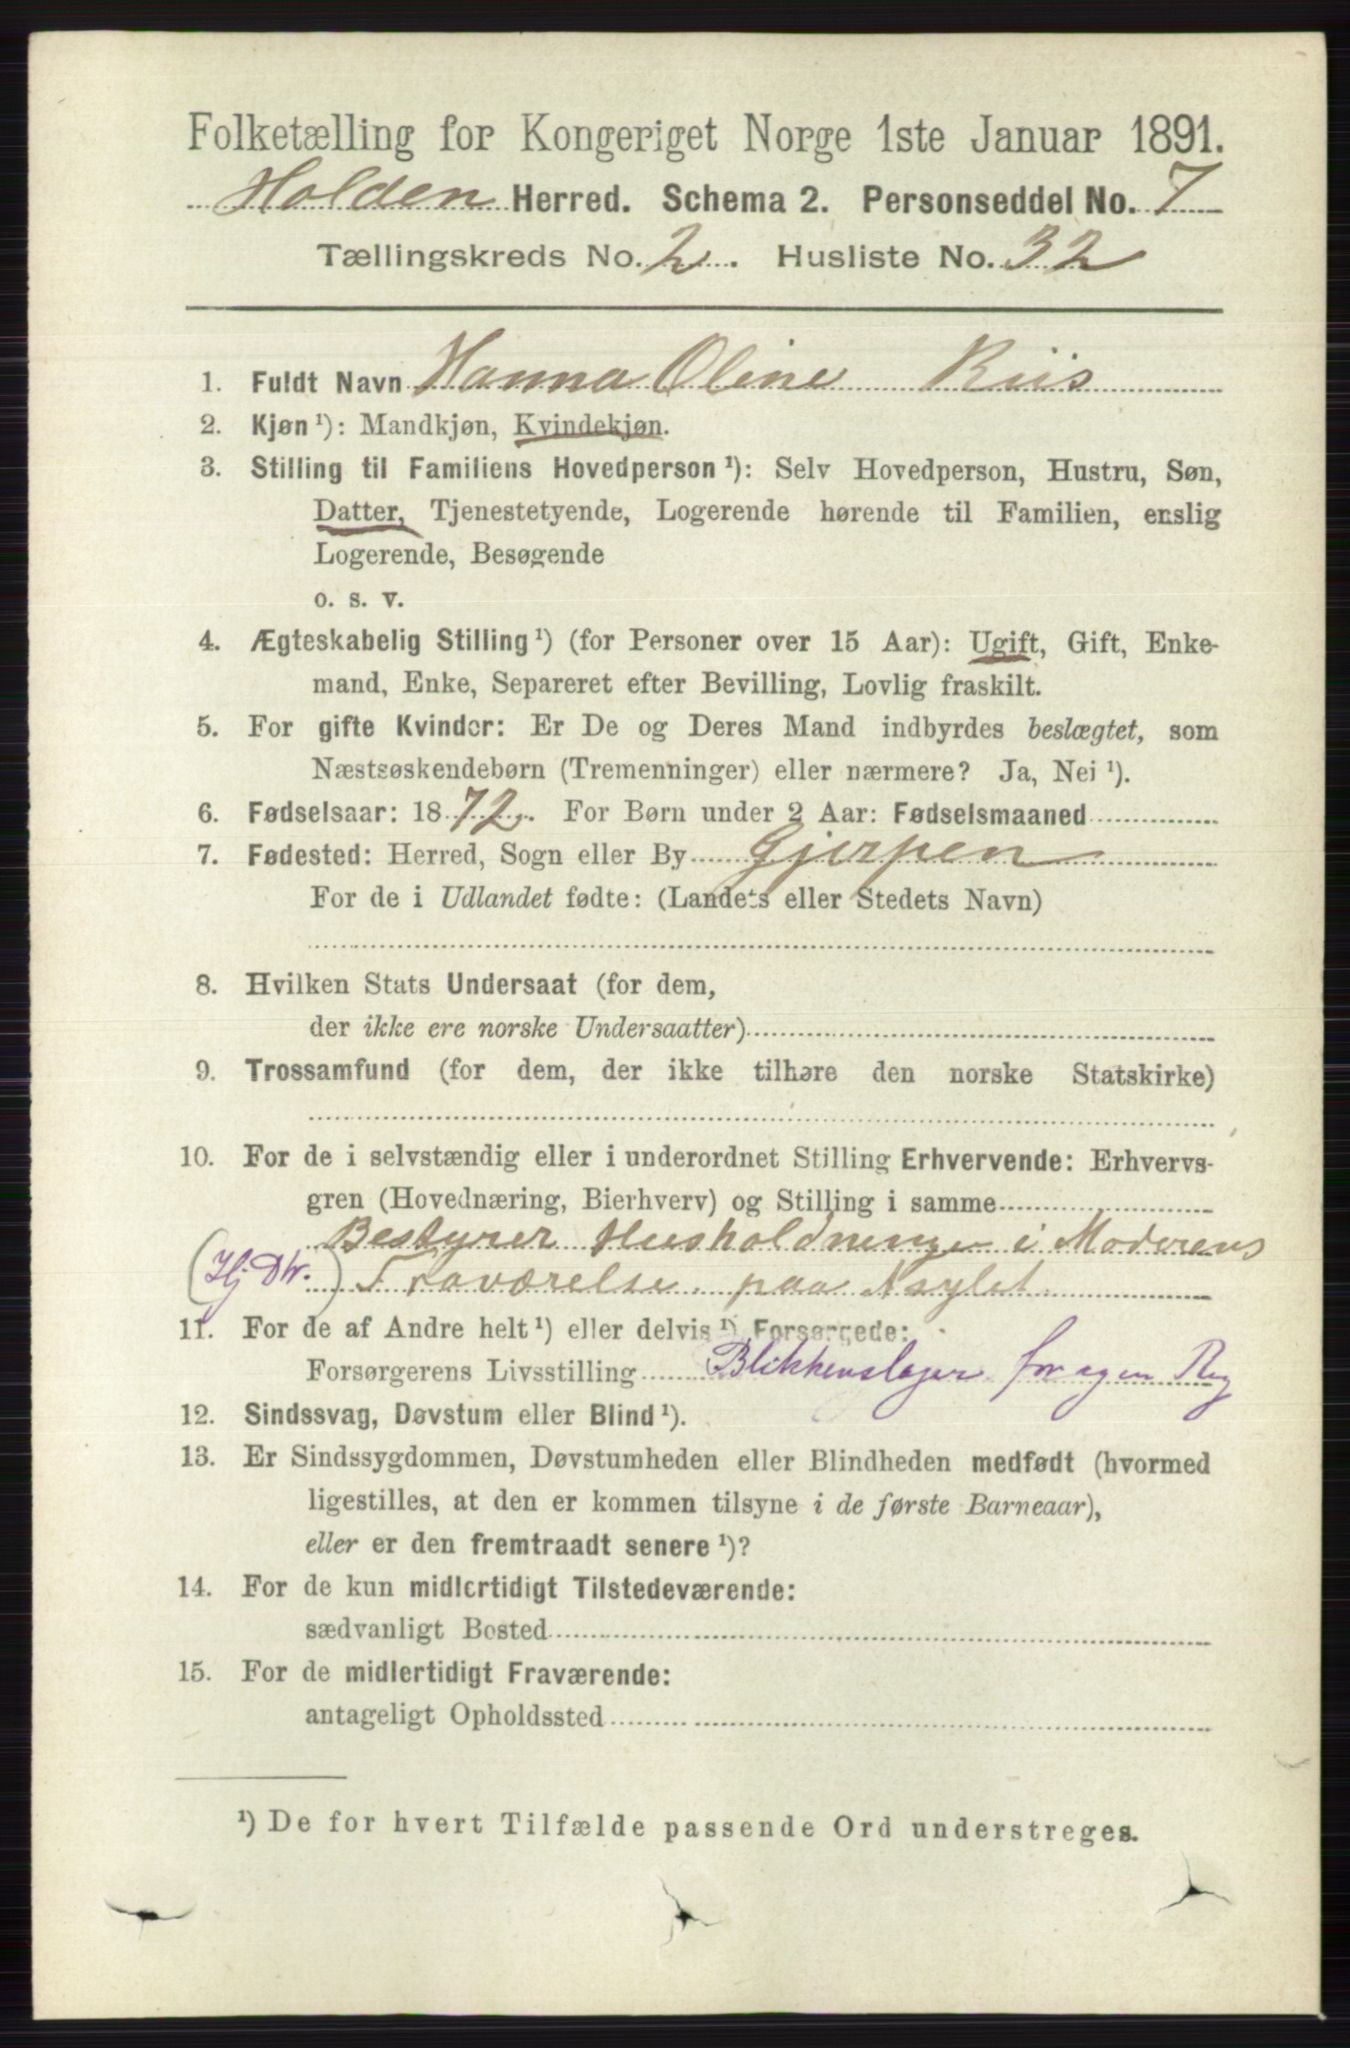 Folketælling for Kongeriget Norge 1ste Januar 1891.
Holden Herred. Schema 2. Personseddel No. 7
Tællingskreds No. 2. Husliste No. 32
1. Fuldt Navn Hanna Oline Riis
2. Kjøn ¹): Mandkjøn, Kvindekjøn.
3. Stilling til Familiens Hovedperson ¹): Selv Hovedperson, Hustru, Søn,
Datter, Tjenestetyende, Logerende hørende til Familien, enslig
Logerende, Besøgende
o. s. v.
4. Ægteskabelig Stilling ¹) (for Personer over 15 Aar): Ugift, Gift, Enke-
mand, Enke, Separeret efter Bevilling, Lovlig fraskilt.
5. For gifte Kvinder: Er De og Deres Mand indbyrdes beslægtet, som
Næstsøskendebørn (Tremenninger) eller nærmere? Ja, Nei ¹).
6. Fødselsaar: 1872. For Børn under 2 Aar: Fødselsmaaned
7. Fødested: Herred, Sogn eller By Gjerpen
For de i Udlandet fødte: (Landets eller Stedets Navn)
8. Hvilken Stats Undersaat (for dem,
der ikke ere norske Undersaatter)
9. Trossamfund (for dem, der ikke tilhøre den norske Statskirke)
10. For de i selvstændig eller i underordnet Stilling Erhvervende: Erhvervs-
gren (Hovednæring, Bierhverv) og Stilling i samme
Bestyrer Husholdningen i Moderens
(Hj Dtr.) Fraværelse paa Asylet
11. For de af Andre helt ¹) eller delvis ¹) Forsørgede:
Forsørgerens Livsstilling Blikkenslager for egen Reg
12. Sindssvag, Døvstum eller Blind ¹).
13. Er Sindssygdommen, Døvstumheden eller Blindheden medfødt (hvormed
ligestilles, at den er kommen tilsyne i de første Barneaar),
eller er den fremtraadt senere ¹)?
14. For de kun midlertidigt Tilstedeværende:
sædvanligt Bosted
15. For de midlertidigt Fraværende:
antageligt Opholdssted
¹) De for hvert Tilfælde passende Ord understreges.